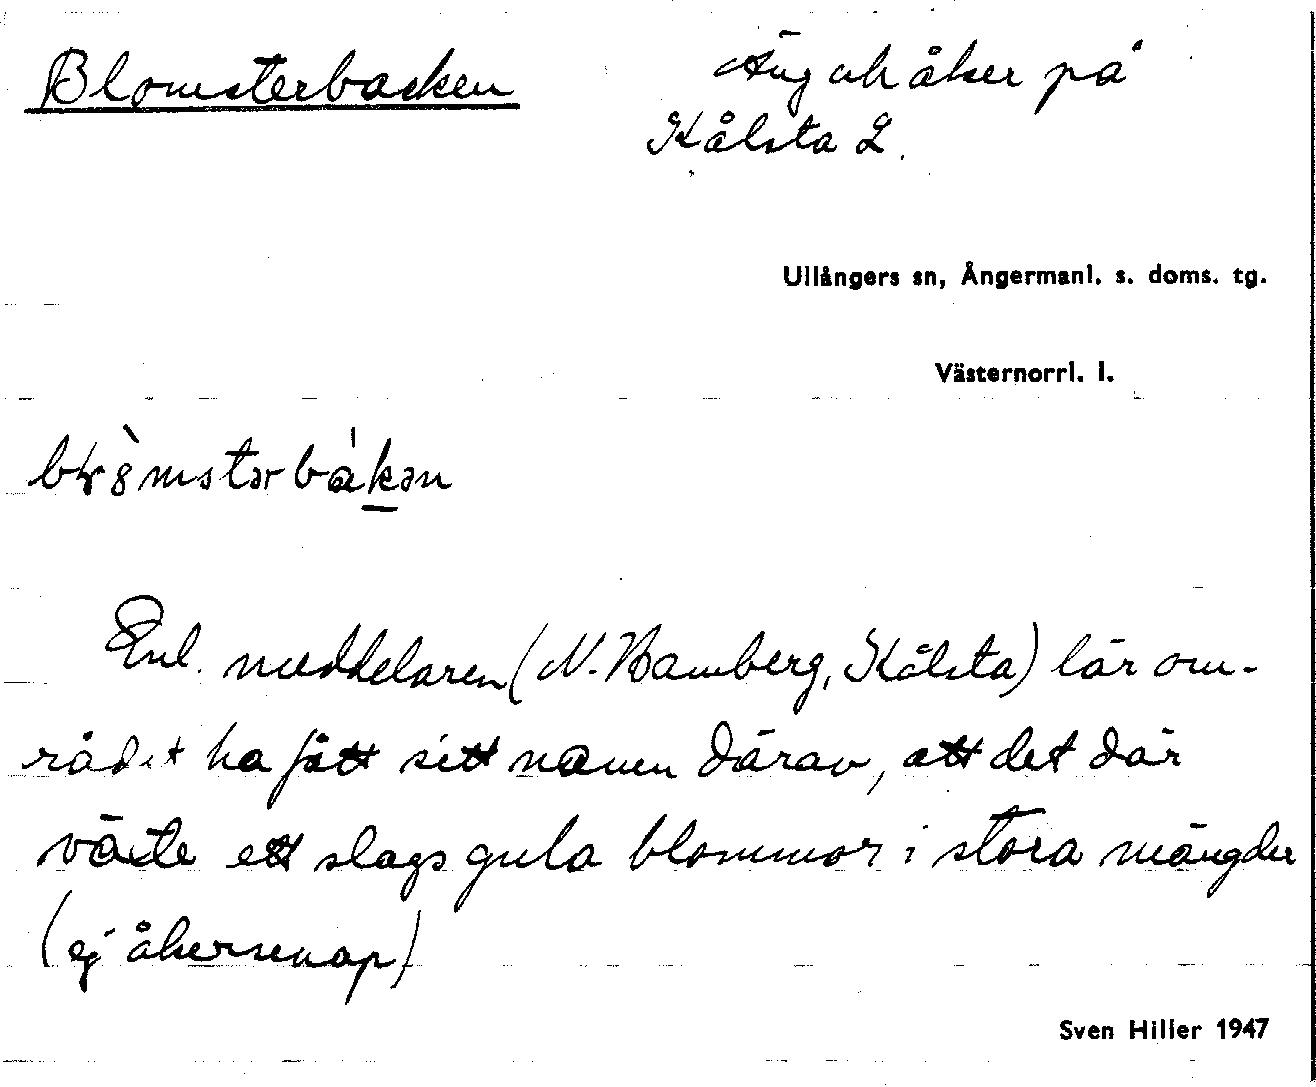 Blomsterbacken
Äng och åker på
Kålsta 2.
Ullångers sn, Ångermanl. s. doms. tg.
Västernorrl. l.
Enl. meddelaren (N. Hamberg, Kålsta) lär om-
rådet ha fått sitt namn därav, att det där
växte ett slags gula blommor i stora mängder
(ej åkersenap)
Sven Hiller 1947